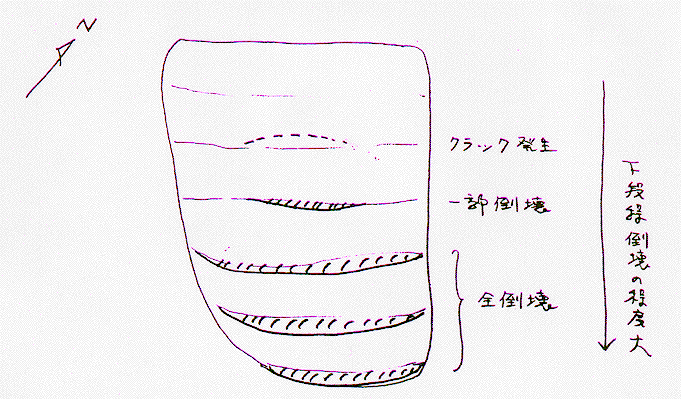 N
クラック発生
一部倒壊
全倒壊
下段程倒壊の程度大